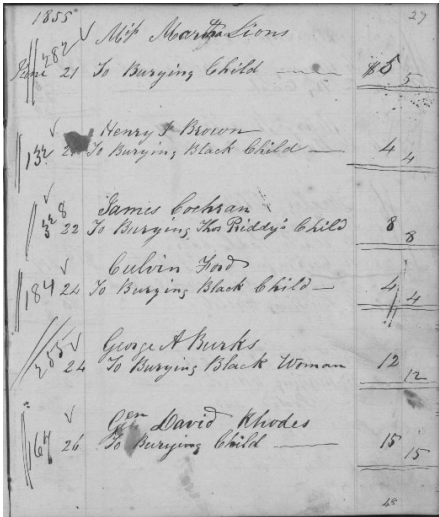 1855 27
282 Miss Martha Lions
June 21 To Burying Child $5 5
Henry J Brown
132 To Burying Black Child 4 4
328 James Cochran
22 To Burying Thos Riddy's Child 8 8
Culvin Ford
184 24 To Burying Black Child 4 4
George A Burks
255 24 To Burying Black Woman 12 12
Gen David Rhodes
167 26 To Burying Child 15 15
48